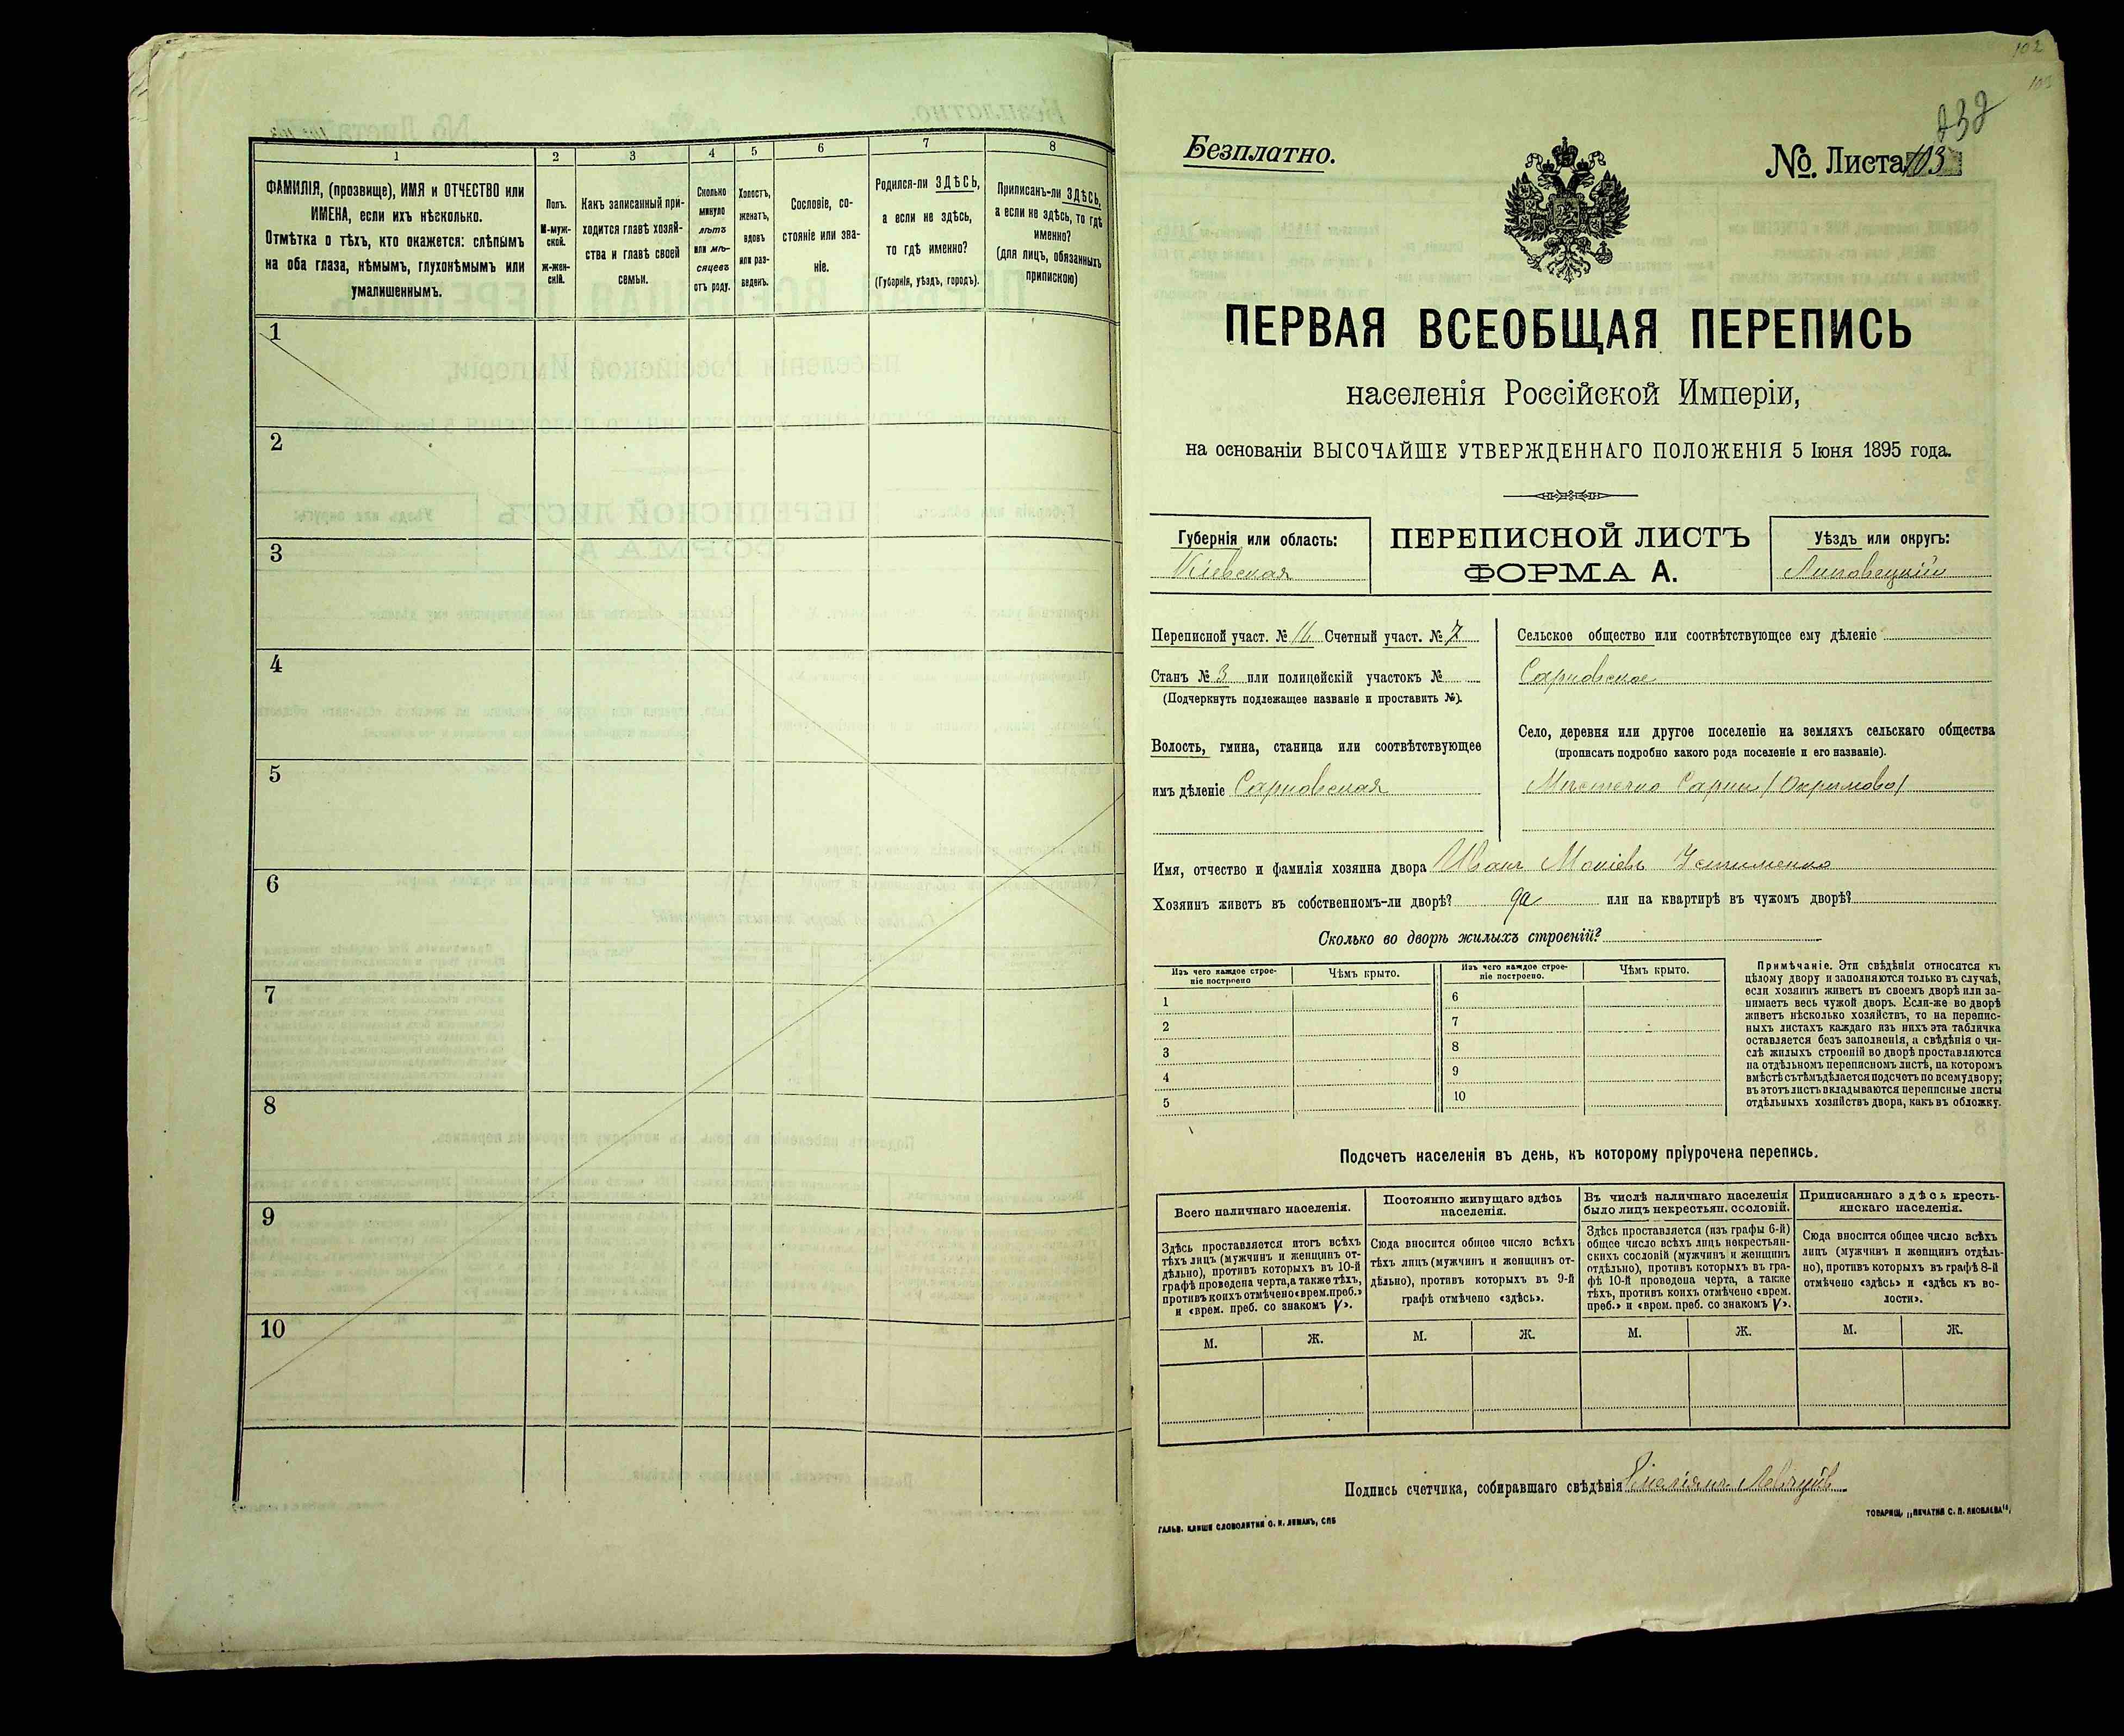 1
2
3
4
5
6
7
8
ФАМИЛІЯ, (прозвище), ИМЯ и ОТЧЕСТВО или
ИМЕНА, если ихъ нѣсколько.
Отмѣтка о тѣхъ, кто окажется: слѣпымъ
на оба глаза, нѣмымъ, глухонѣмымъ или
умалишеннымъ.
Полъ.
М-муж-
ской.
Ж-жен-
скій.
Какъ записанный при-
ходится главѣ хозяй-
ства и главѣ своей
семьи.
Сколько
минуло
лѣтъ
или мѣ-
сяцевъ
отъ роду.
Холостъ,
женатъ,
вдовъ
или раз-
веденъ.
Сословіе, со-
стояніе или зва-
ніе.
Родился-ли ЗДѢСЬ,
а если не здѣсь,
то гдѣ именно?
(Губернія, уѣздъ, городъ).
Приписанъ-ли ЗДѢСЬ,
а если не здѣсь, то гдѣ
именно?
(для лицъ, обязанныхъ
припискою)
1
2
3
4
5
6
7
8
9
10
102
103
Безплатно.
№. Листа 103
ПЕРВАЯ ВСЕОБЩАЯ ПЕРЕПИСЬ
населенія Россійской Имперіи,
на основаніи ВЫСОЧАЙШЕ УТВЕРЖДЕННАГО ПОЛОЖЕНІЯ 5 Іюня 1895 года.
Губернія или область:
Кіевская
ПЕРЕПИСНОЙ ЛИСТЪ
ФОРМА А.
Уѣздъ или округъ:
Липовецкій
Переписной участ. № 11 Счетный участ. № 7
Станъ № 3 или полицейскій участокъ №
(Подчеркнуть подлежащее названіе и проставить №).
Волость, гмина, станица или соотвѣтствующее
имъ дѣленіе Сарновская
Сельское общество или соотвѣтствующее ему дѣленіе
Сарновское
Село, деревня или другое поселеніе на земляхъ сельскаго общества
(прописать подробно какого рода поселеніе и его названіе).
Мѣстечко Сарны (Окримово)
Имя, отчество и фамилія хозяина двора Иванъ Мокіевъ Устименко
Хозяинъ живетъ въ собственномъ-ли дворѣ? да или на квартирѣ въ чужомъ дворѣ?
Сколько во дворѣ жилыхъ строеній?
Изъ чего каждое строе-
ніе построено
Чѣмъ крыто.
Изъ чего каждое строе-
ніе построено.
Чѣмъ крыто.
1
2
3
4
5
6
7
8
9
10
Примѣчаніе. Эти свѣдѣнія относятся къ
цѣлому двору и заполняются только въ случаѣ,
если хозяинъ живетъ въ своемъ дворѣ или за-
нимаетъ весь чужой дворъ. Если-же во дворѣ
живетъ нѣсколько хозяйствъ, то на перепис-
ныхъ листахъ каждаго изъ нихъ эта табличка
оставляется безъ заполненія, а свѣдѣнія о чи-
слѣ жилыхъ строеній во дворѣ проставляются
на отдѣльномъ переписномъ листѣ, на которомъ
вмѣстѣ съ тѣмъ дѣлается подсчетъ по всему двору;
въ этотъ листъ вкладываются переписные листы
отдѣльныхъ хозяйствъ двора, какъ въ обложку.
Подсчетъ населенія въ день, къ которому пріурочена перепись.
Всего наличнаго населенія.
Здѣсь проставляется итогъ всѣхъ
тѣхъ лицъ (мужчинъ и женщинъ от-
дѣльно), противъ которыхъ въ 10-й
графѣ проведена черта, а также тѣхъ,
противъ коихъ отмѣчено «врем. преб.»
и «врем. преб. со знакомъ V».
Постоянно живущаго здѣсь
населенія.
Сюда вносится общее число всѣхъ
тѣхъ лицъ (мужчинъ и женщинъ от-
дѣльно), противъ которыхъ въ 9-й
графѣ отмѣчено «здѣсь».
Въ числѣ наличнаго населенія
было лицъ некрестьян. сословій.
Здѣсь проставляется (изъ графы 6-й)
общее число всѣхъ лицъ некрестьян-
скихъ сословій (мужчинъ и женщинъ
отдѣльно), противъ которыхъ въ гра-
фѣ 10-й проведена черта, а также
тѣхъ, противъ коихъ отмѣчено «врем.
преб.» и «врем. преб. со знакомъ V».
Приписаннаго здѣсь кресть-
янскаго населенія.
Сюда вносится общее число всѣхъ
лицъ (мужчинъ и женщинъ отдѣль-
но), противъ которыхъ въ графѣ 8-й
отмѣчено «здѣсь» и «здѣсь къ во-
лости».
М.
Ж.
М.
Ж.
М.
Ж.
М.
Ж.
Подпись счетчика, собиравшаго свѣдѣнія
ГАЛЬВ. КЛИШЕ СЛОВОЛИТНИ О. И. ЛЕМАНЪ, СПБ
ТОВАРИЩ. „ПЕЧАТНЯ С. П. ЯКОВЛЕВА",